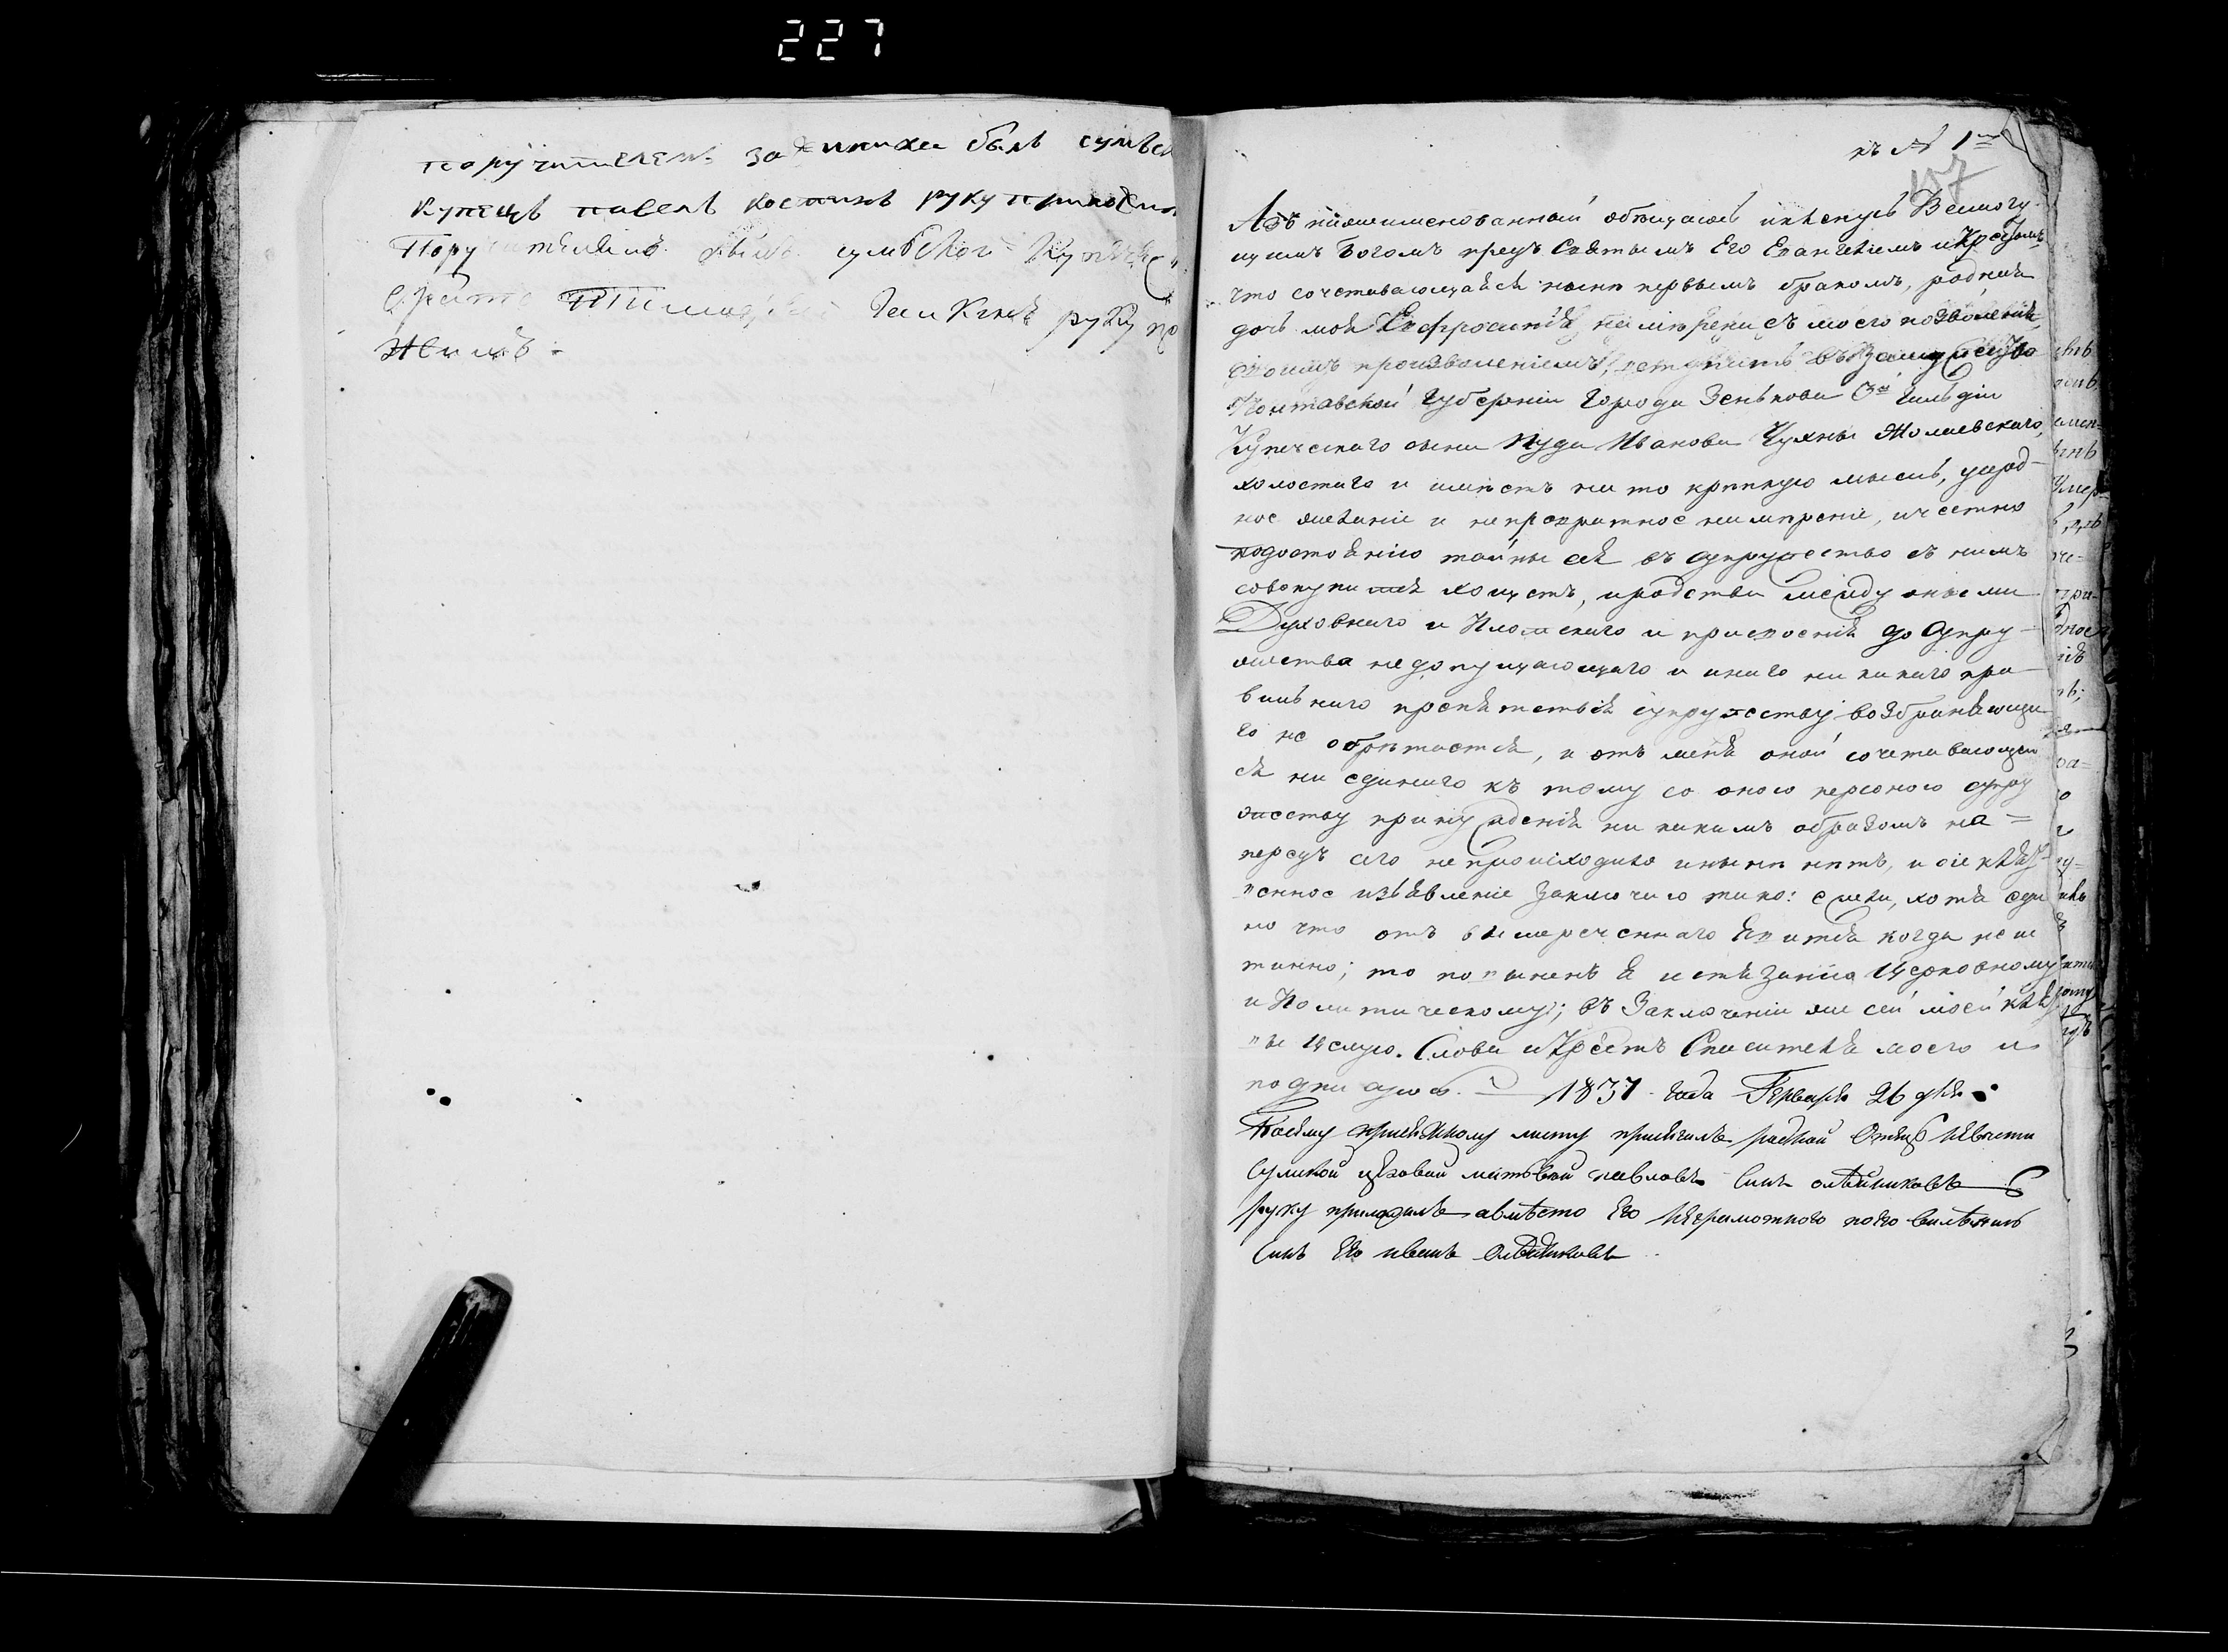 227
поручителемъ за жениха былъ сумъск
купецъ павелъ костинъ руку приложил
Поручителемъ былъ сумской Купецъ
руку пр
жилъ
къ № 1му
117
Азъ нижеименованный обѣщаюсь и клянусь Всемогу-
щимъ Богомъ предъ Святымъ Его Евангеліемъ и Крестомъ,
что сочетавающаяся нынѣ первымъ бракомъ, родная
дочь моя Евфросинія, намѣрена съ моего позволенія,
своимъ произволеніемъ, вступить въ замужество
Полтавской Губерніи города Зенькова 3й гильдіи
Купеческаго сына Іуды Иванова Чухны
холостаго и имѣетъ на то крѣпкую мысль, усерд-
ное желаніе и непревратное намѣреніе, и честно
по достоянію тайны сея въ супружество съ нимъ
совокупится хощетъ, и родства между оными
Духовнаго и Плотскаго и присвоенія до супру-
жества недопущающаго и инаго никакого пра-
вильнаго препятствія супружеству возбраняюща-
го не обрѣтается, и отъ меня оной сочетавающей
ся ни единаго къ тому со оною персоною супру
жеству принужденія никакимъ образомъ на-
предъ сего не происходило и нынѣ нѣтъ, и сіе клят-
венное изъявленіе заключаю тако: ежели, хотя еди
но что отъ вышереченнаго явится когда неис
тинно; то повиненъ я истязанію Церковному
и Политическому; въ заключеніи же сей моей клят
вы цѣлую Слова и Крестъ Спасителя моего и
подписуюсь. 1837 года Генваря 26 дня.
Ксему присяжному листу присягалъ родной Отецъ невѣсты
Сумской цеховой матвѣй павловъ Сынъ олѣйниковъ
руку приложилъ авмѣсто Его неграмотного поего веленію
Сынъ Его иванъ Олѣйниковъ